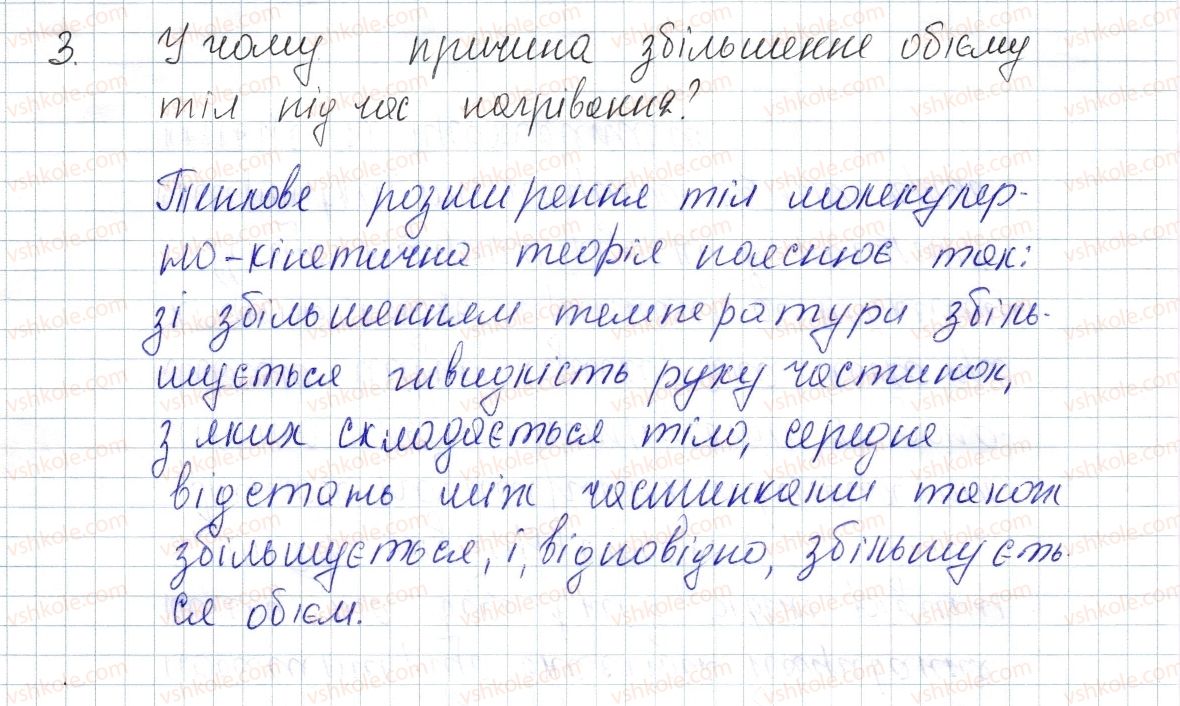 3. У чому причина збільшення обієму
тіл під час нагрівання?
Теплове розширення тіл молекуляр-
но-кінетична теорія пояснює так:
зі збільшенням температури збіль-
шується швидкість руху частинок,
з яких складається тіло, середня
відстань між частинками також
збільшується, і, відповідно, збільшуєть-
ся обієм.